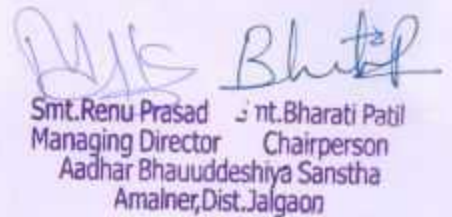 Smt.Renu Prasad nt.Bharati Patil
Managing Director Chairperson
Aadhar Bhauuddeshiya Sanstha
Amalner,Dist.Jalgaon